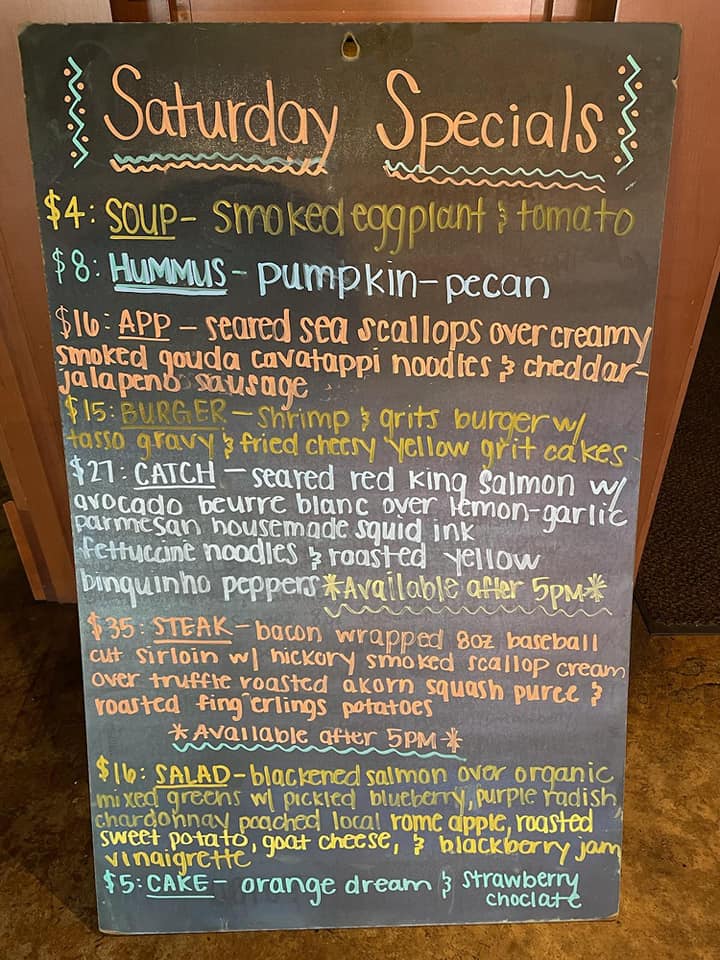 Saturday Specials
$4: SOUP- smoked eggplant & tomato
$8: HUMMUS - pumpkin-pecan
$16: APP - seared sea scallops over creamy
smoked gouda cavatappi noodles & cheddar-
jalapeno sausage
$15: BURGER - Shrimp & grits burger w/
tasso gravy & fried cheesy yellow grit cakes
$27: CATCH - seared red king salmon w/
avocado beurre blanc over lemon-garlic
parmesan housemade squid ink
fettuccine noodles & roasted yellow
binquinho peppers *Available after 5PM*
$35: STEAK - bacon wrapped 8oz baseball
cut sirloin w/ hickory smoked scallop cream
over truffle roasted akorn squash puree &
roasted fing erlings potatoes
*Available after 5PM*
$16: SALAD - blackened salmon over organic
mixed greens w/ pickled blueberry, purple radish,
chardonnay poached local rome apple, roasted
sweet potato, goat cheese, & blackberry jam
vinaigrette
$5: CAKE - orange dream & strawberry
choclate